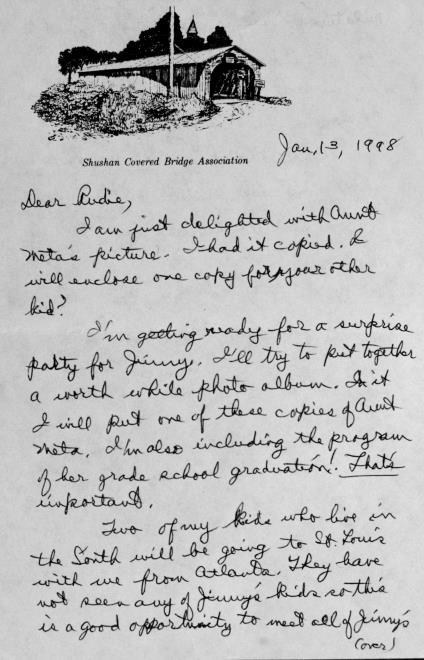 Shushan Covered Bridge Association
Jan, 13, 1998
Dear Rudie,
I am just delighted with Aunt
Meta's picture. I had it copied. I
will enclose one copy for your other
kid?
I'm getting ready for a surprise
party for Jimmy. I'll try to put together
a worth while photo album. In it
I will put one of these copies of Aunt
Meta. I'm also including the program
of her grade school graduation! That's
important.
Two of my kids who live in
the South will be going to St. Louis
with me from Atlanta. They have
not seen any of Jimmy's kids so this
is a good opportunity to meet all of Jimmy's
(over)